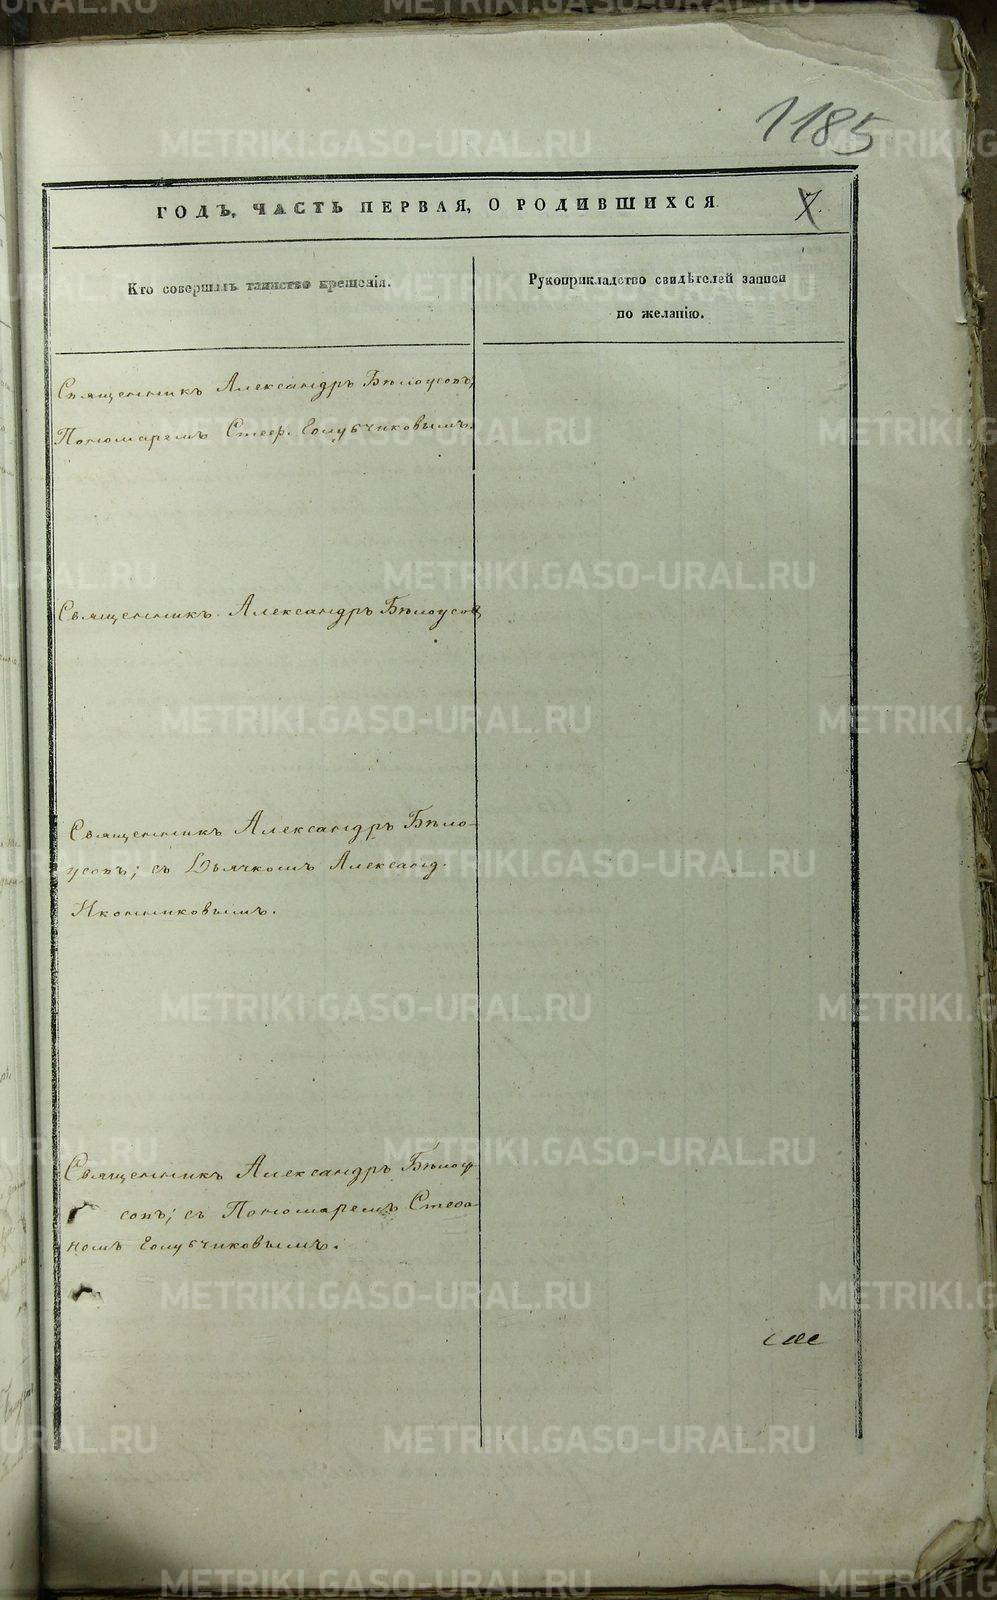 1185
ГОДЪ, ЧАСТЬ ПЕРВАЯ, О РОДИВШИХСЯ 7.
Кто совершалъ таинство крещенія.
Рукоприкладство свидѣтелей записи
по желанію.
Священникъ Александръ Бѣлоусовъ,
Пономаремъ Стеф. Голубчиковымъ.
Священникъ Александръ Бѣлоусовъ
Священникъ Александръ Бѣло-
усовъ; съ Дьячкомъ Александ.
Иконниковымъ.
Священникъ Александръ Бѣлоу-
совъ; съ Пономаремъ Стефа-
номъ Голубчиковымъ.
METRIKI.GASO-URAL.RU